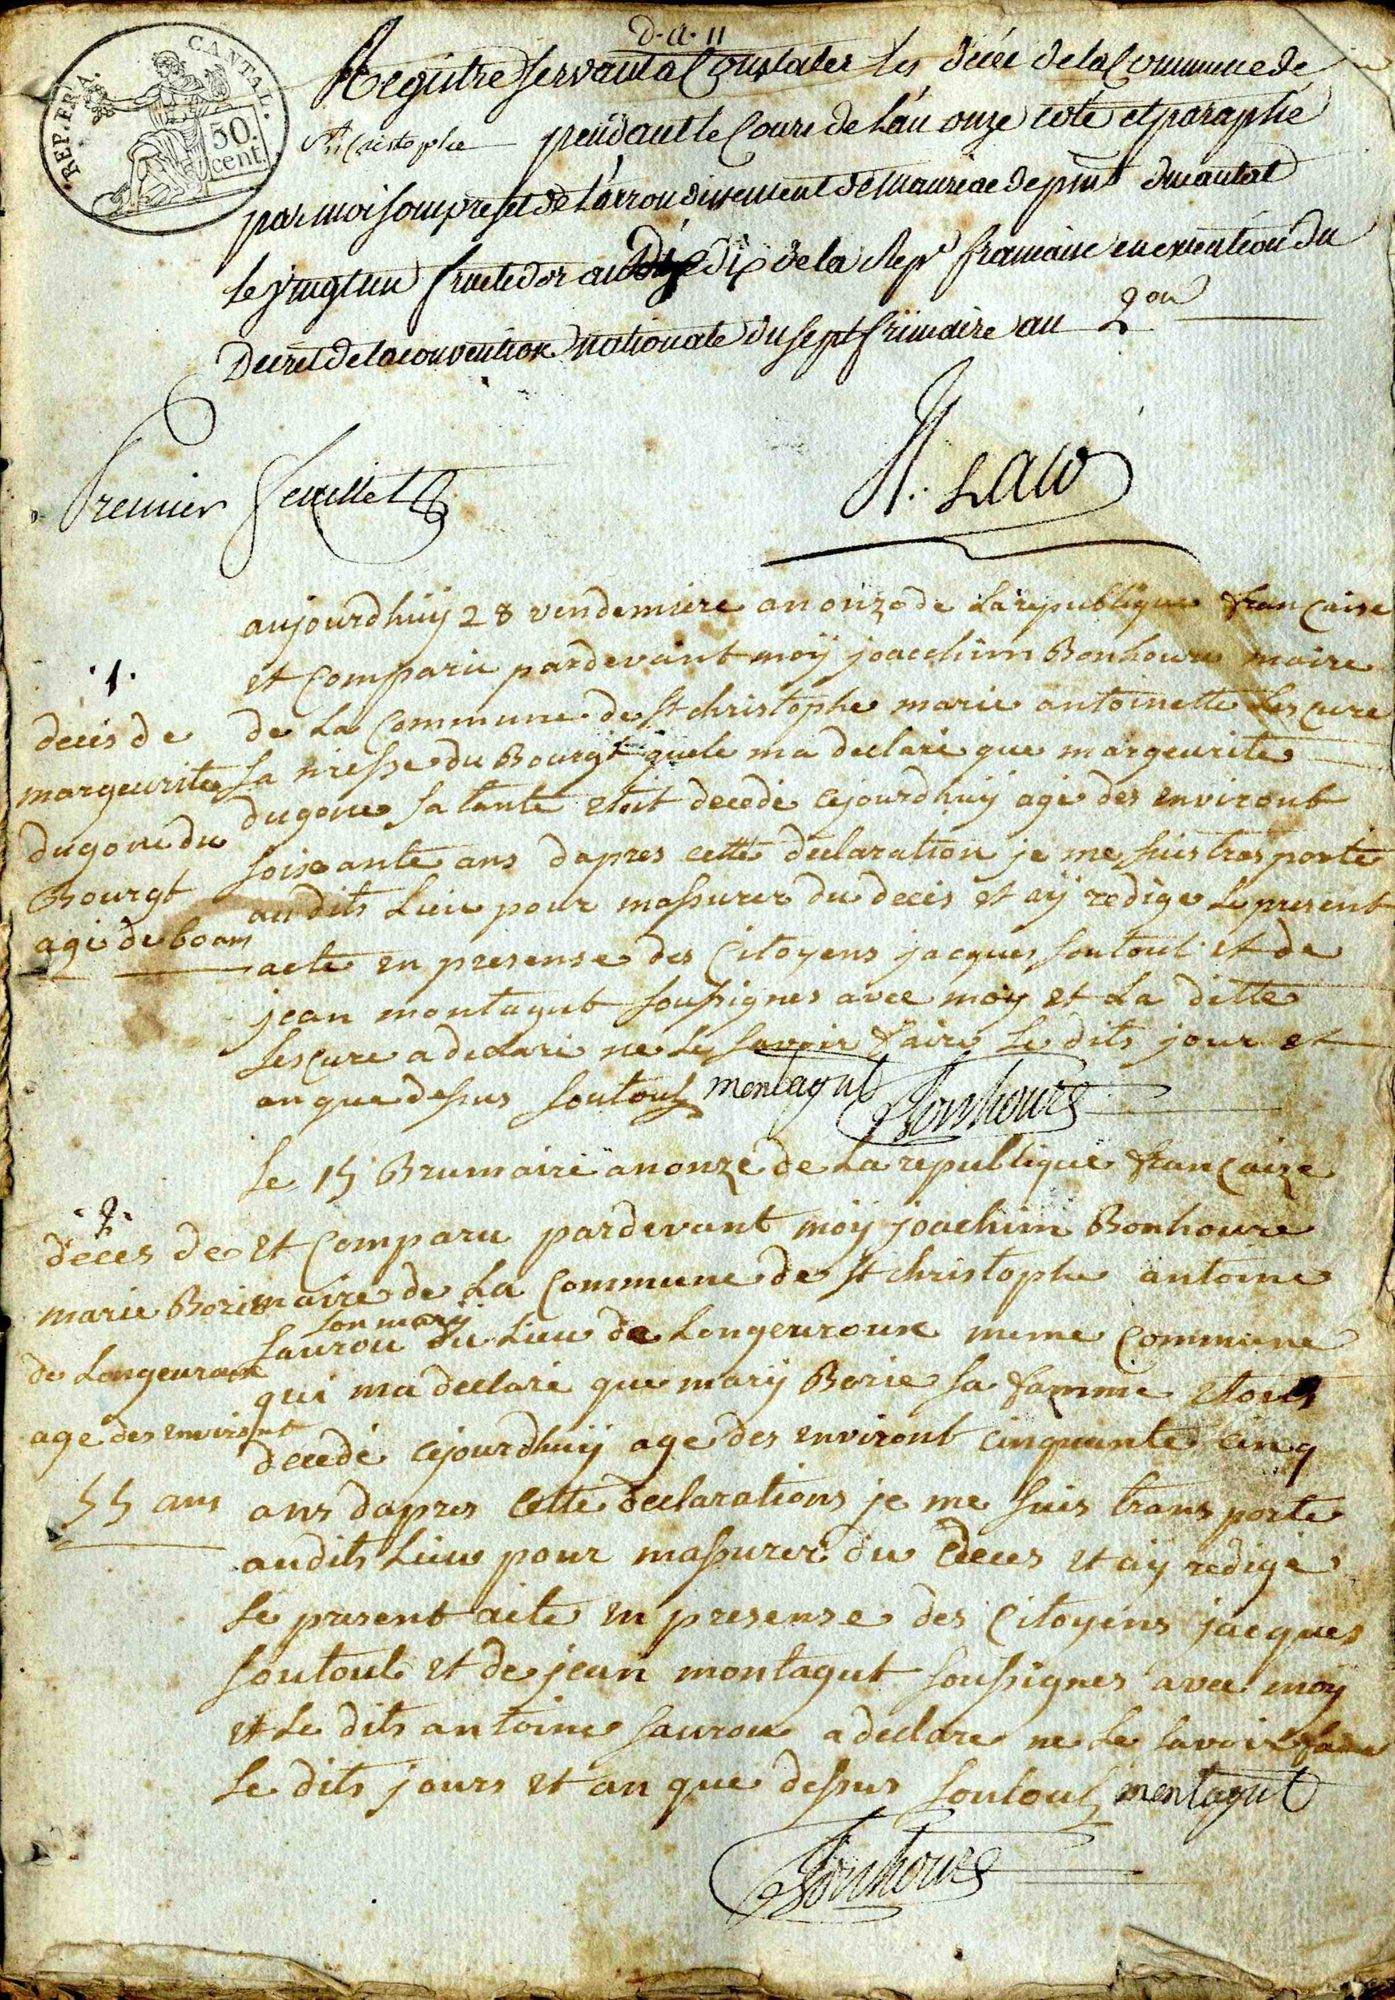 d. a. 11
REP. FRA. CANTAL.
50. cent.
Registre servant a Constater les décés de la Commune de
St. Cristophe pendant le Cours de l'an onze coté et paraphé
par moi souprefet de l'arrondissement de Mauriac depmt du Cantal
le vingt un fructidor an dix de la Repe francaise en execution du
Decret de la convention nationale du sept frimaire an 2on
Premier feuillet
aujourdhuy 28 vendemiere an onze de La republique française
et Comparu pardevant moÿ joacchim Bonhoure maire
de La Commune de st christophe marie antoinette Lescure
sa niesse du Bourgt quele ma declaré que margeurite
dugone sa tante etoit decedé cejourdhuÿ agé des environt
soixante ans dapres cette declaration je me suis trasporté
au dits Lieu pour massurer du decés et aÿ redige Le present
acte en presense des Citoyens jacques soutoul et de
jean montagut soussignes avec moy et La ditte
Lescure a declaré ne Le savoir faire Le dits jour et
an que dessus soutoul montagut Bonhoure
.1.
decés de
margeurite
dugone du
Bourgt
agé de 60 ans
Le 15 Brumaire an onze de La republique françaize
et Comparu pardevant moÿ joachim Bonhoure
maire de La Commune de st christophe antoine
son marÿ
Laurou du Lieu de Longeuroux meme Commune
qui ma declaré que marÿ Borie sa famme etoit
decedé cejourdhuÿ age des environt cinquante cinq
ans dapres Cette declarations je me suis transporte
audits Lieu pour massurer du deces et aÿ redigé
Le present acte en presense des Citoyens jacques
soutoul et de jean montagut soussignes avec moÿ
et Le dits antoine Laurou a declare ne Le savoir faire
Le dits jours et an que dessus soutoul montagut
Bonhoure
.2.
deces de
marie Borie
de Longeuroux
age des environt
55 ans